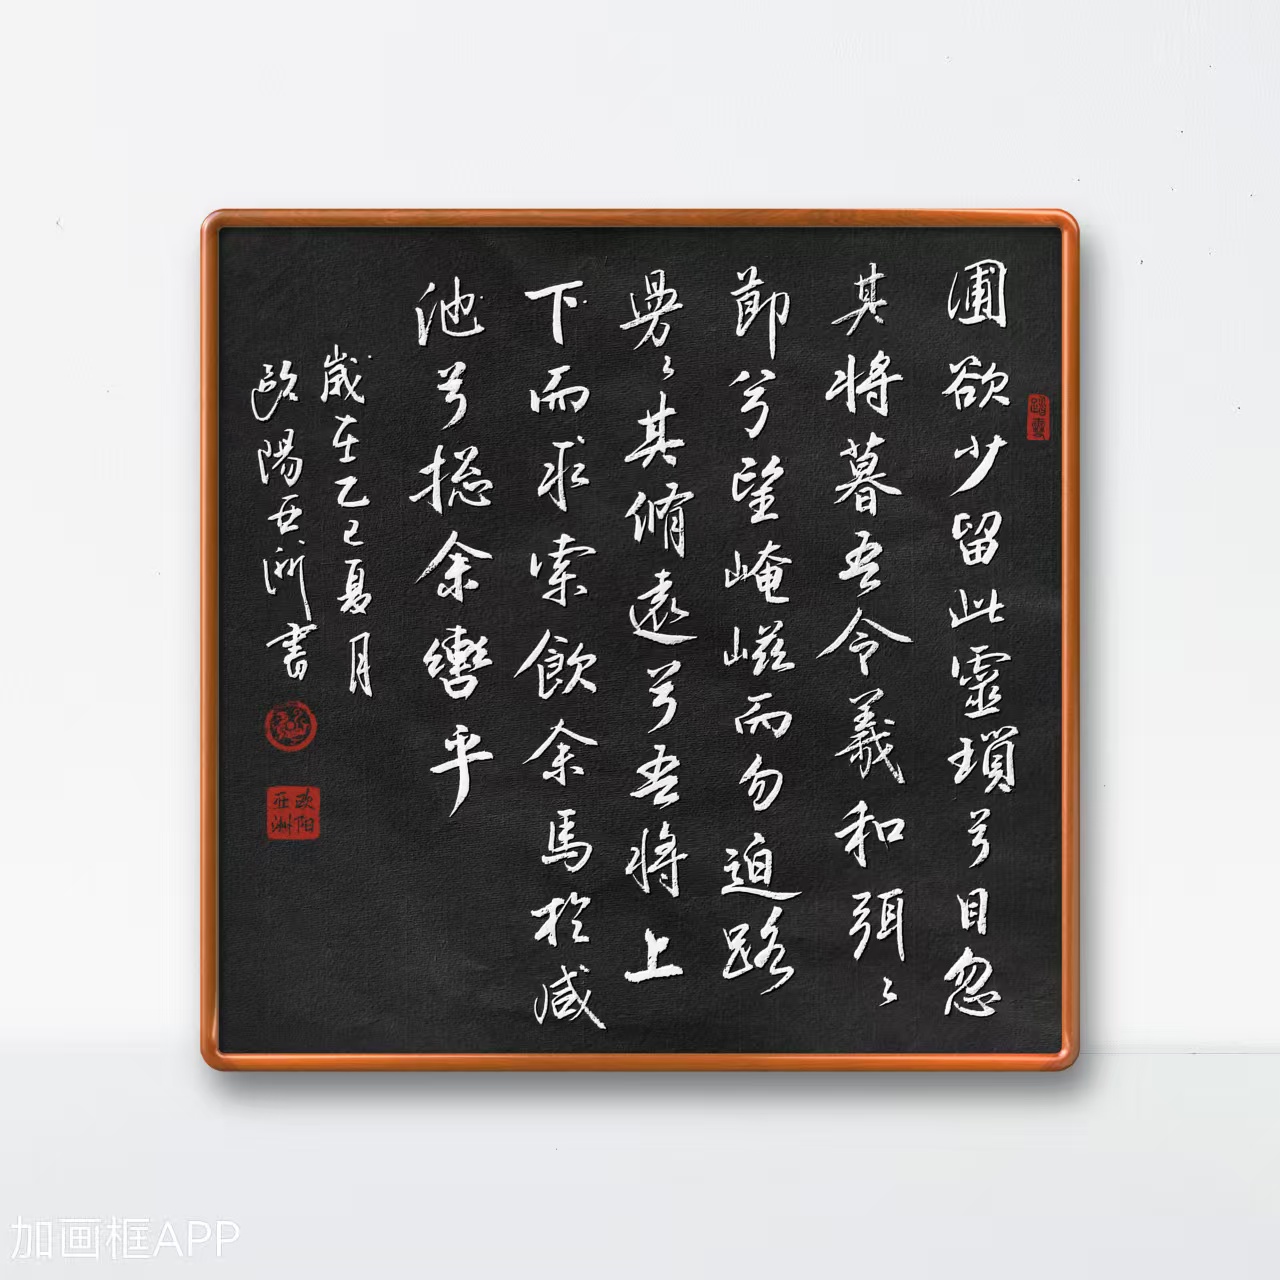 圃欲少留此靈瑣兮日忽
其将暮吾令義和弭〻
節兮望崦嵫而勿迫路
曼〻其脩遠兮吾将上
下而求索飲余馬於咸
池兮総余轡乎
歲在乙巳夏月
歐陽亞洲書
欧阳亚洲
加画框APP